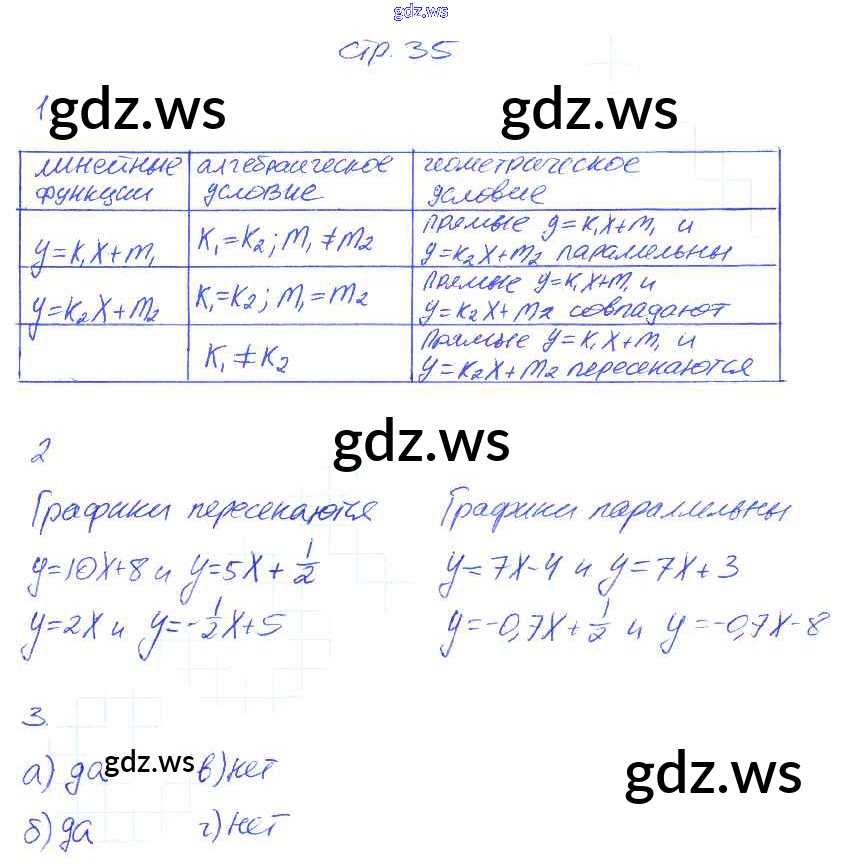 gdz.ws
стр. 35
1
gdz.ws
gdz.ws
линейные функции | алгебраическое условие | геометрическое условие
y=k₁x+m₁ | k₁=k₂; m₁≠m₂ | прямые y=k₁x+m₁ и y=k₂x+m₂ параллельны
y=k₂x+m₂ | k₁=k₂; m₁=m₂ | прямые y=k₁x+m₁ и y=k₂x+m₂ совпадают
k₁≠k₂ | прямые y=k₁x+m₁ и y=k₂x+m₂ пересекаются
gdz.ws
2
Графики пересекаются
y=10x+8 и y=5x+1/2
y=2x и y=-1/2x+5
Графики параллельны
y=7x-4 и y=7x+3
y=-0,7x+1/2 и y=-0,7x-8
3.
а) да
gdz.ws
в) нет
gdz.ws
б) да
г) нет